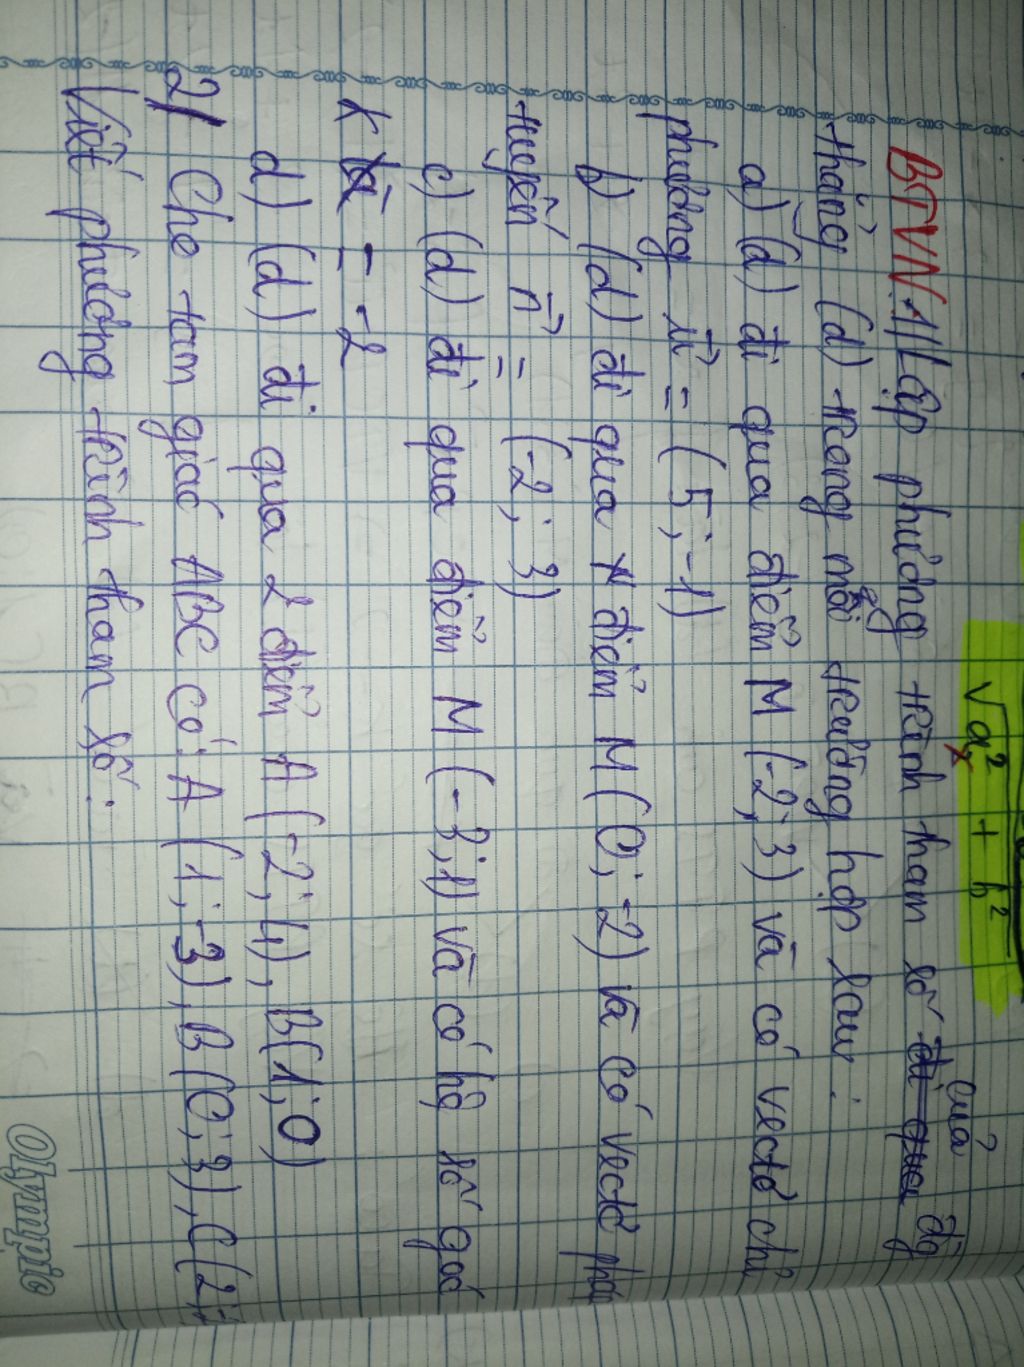 √a² + b²
BTVN 1/ Lập phương trình tham số của đg
thẳng (d) trong mỗi trường hợp sau:
a) (d) đi qua điểm M (-2; 3) và có vectơ chỉ
phương u = (5; -1)
b) (d) đi qua điểm M (0; -2) và có vectơ pháp
tuyến n = (-2; 3)
c) (d) đi qua điểm M (-3; 1) và có hệ số góc
k = -2
d) (d) đi qua 2 điểm A (-2; 4), B(1; 0)
2/ Cho tam giác ABC có: A (1; -3), B (0; 3), C(2;
Viết phương trình tham số:
Olympic